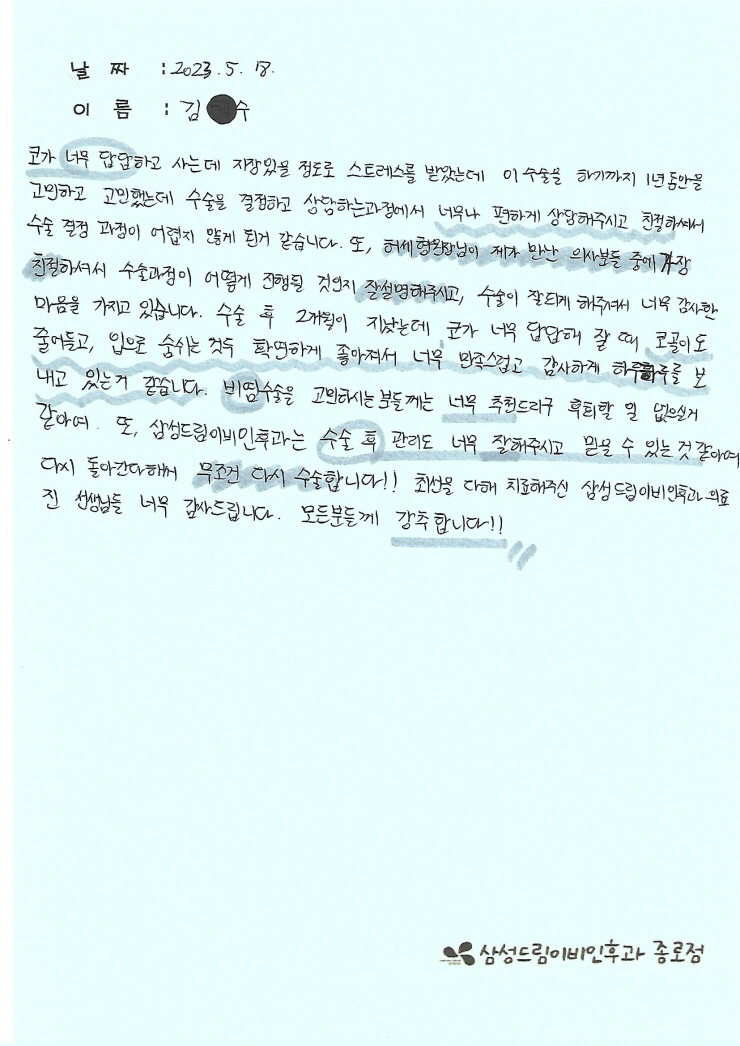 날 짜 : 2023. 5. 18.
이 름 : 김 수
코가 너무 답답하고 사는데 지장있을 정도로 스트레스를 받았는데 이 수술을 하기까지 1년동안을
고민하고 고민했는데 수술을 결정하고 상담하는과정에서 너무나 편하게 상담해주시고 친절하셔서
수술 결정 과정이 어렵지 않게 된거 같습니다. 또, 허세형원장님이 제가 만난 의사분들 중에 가장
친절하셔서 수술과정이 어떻게 진행될 것인지 잘설명해주시고, 수술이 잘되게 해주셔서 너무 감사한
마음을 가지고 있습니다. 수술 후 2개월이 지났는데 코가 너무 답답해 잘 때 코골이도
줄어들고, 입으로 숨쉬는 것두 확연하게 좋아져서 너무 만족스럽고 감사하게 하루하루를 보
내고 있는거 같습니다. 비염수술을 고민하시는 분들께는 너무 추천드리구 후회할 일 없으실거
같아여. 또, 삼성드림이비인후과는 수술 후 관리도 너무 잘해주시고 믿을 수 있는 것 같아여
다시 돌아간다해서 무조건 다시 수술합니다!! 최선을 다해 치료해주신 삼성드림이비인후과 의료
진 선생님들 너무 감사드립니다. 모든분들께 강추합니다!!
삼성드림이비인후과 종로점